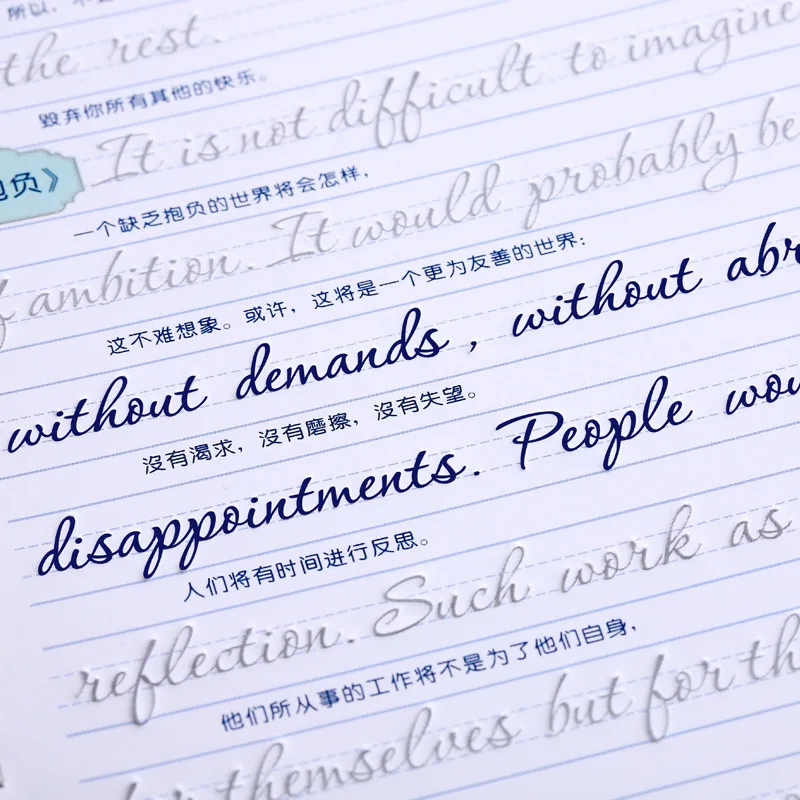 所以，
the rest.
毁弃你所有其他的快乐。
It is not difficult to imagine
抱负》
一个缺乏抱负的世界将会怎样，
f ambition. It would probably be
这不难想象。或许，这将是一个更为友善的世界：
without demands, without abr
沒有渴求，沒有磨擦，沒有失望。
disappointments. People wou
人们将有时间进行反思。
reflection. Such work as
他们所从事的工作将不是为了他们自身，
themselves but for th